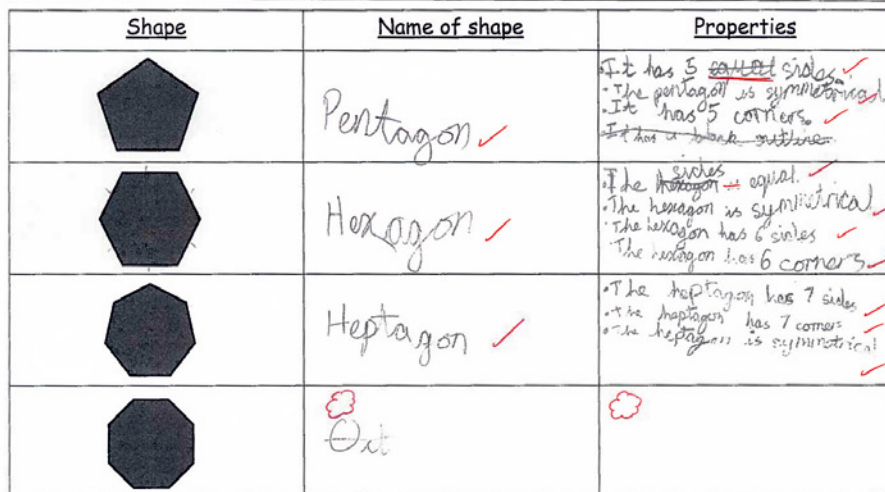 Shape
Name of shape
Properties
Pentagon
• It has 5 equal sides.
• The pentagon is symmetrical
• It has 5 corners.
It has a black outline.
Hexagon
sides
• The hexagon is equal.
• The hexagon is symmetrical
• The hexagon has 6 sides
The hexagon has 6 corners
Heptagon
• The heptagon has 7 sides
• the heptagon has 7 corners
• The heptagon is symmetrical